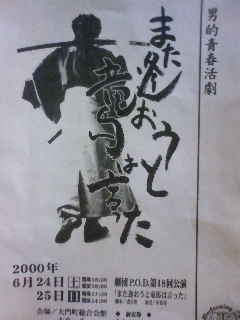 男的青春活劇
また逢おうと
竜馬は言った
2000年
6月24日土
25日日
会場/大門町総合会館
劇団P.O.D.第18回公演
「また逢おうと竜馬は言った」